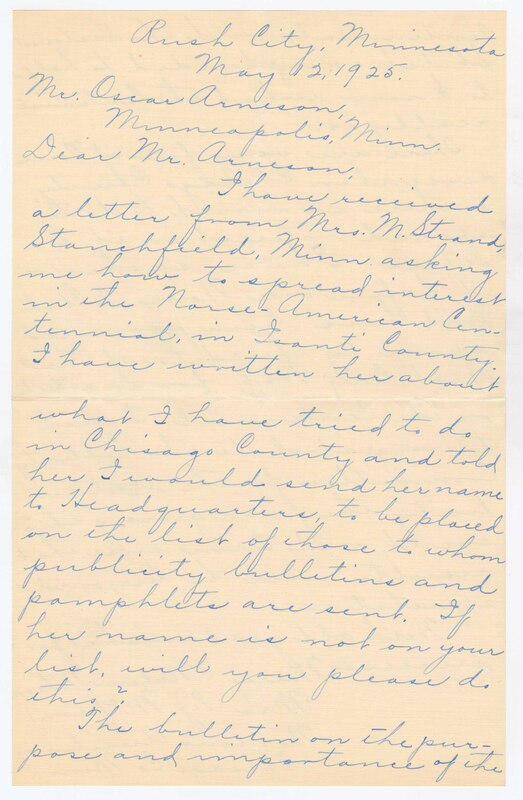 Rush City, Minnesota
May 12, 1925.
Mr. Oscar Arneson,
Minneapolis, Minn.
Dear Mr. Arneson,
I have received
a letter from Mrs. M. Strand,
Stanchfield, Minn. asking
me how to spread interest
in the Norse-American Cen-
tennial, in Isanti County.
I have written her about
what I have tried to do
in Chisago County and told
her I would send her name
to Headquarters, to be placed
on the list of those to whom
publicity bulletins and
pamphlets are sent. If
her name is not on your
list, will you please do
this?
The bulletin on the pur-
pose and importance of the